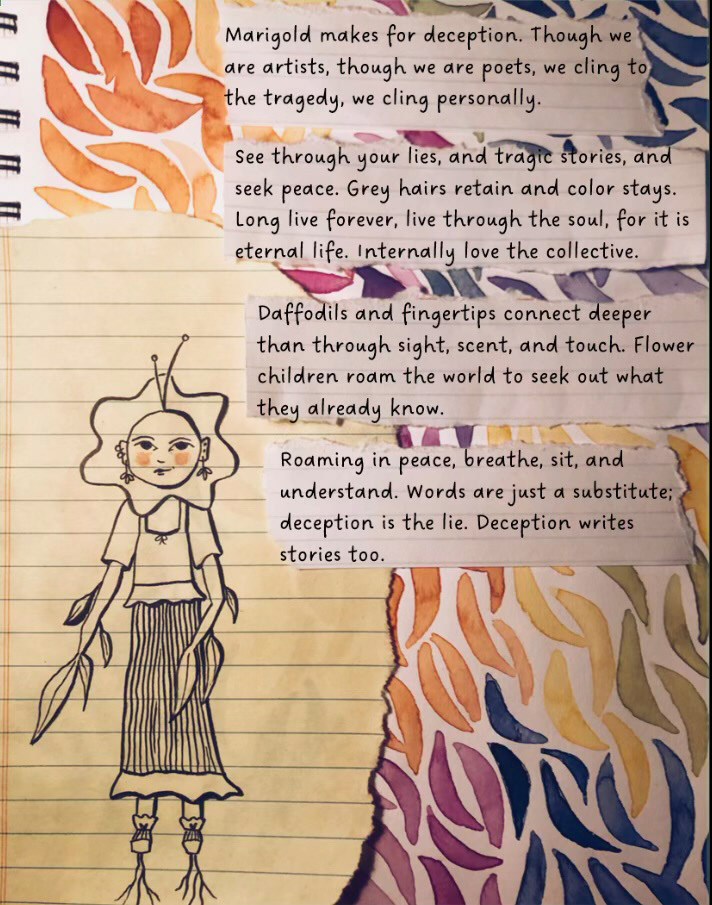 Marigold makes for deception. Though we
are artists, though we are poets, we cling to
the tragedy, we cling personally.
See through your lies, and tragic stories, and
seek peace. Grey hairs retain and color stays.
Long live forever, live through the soul, for it is
eternal life. Internally love the collective.
Daffodils and fingertips connect deeper
than through sight, scent, and touch. Flower
children roam the world to seek out what
they already know.
Roaming in peace, breathe, sit, and
understand. Words are just a substitute;
deception is the lie. Deception writes
stories too.